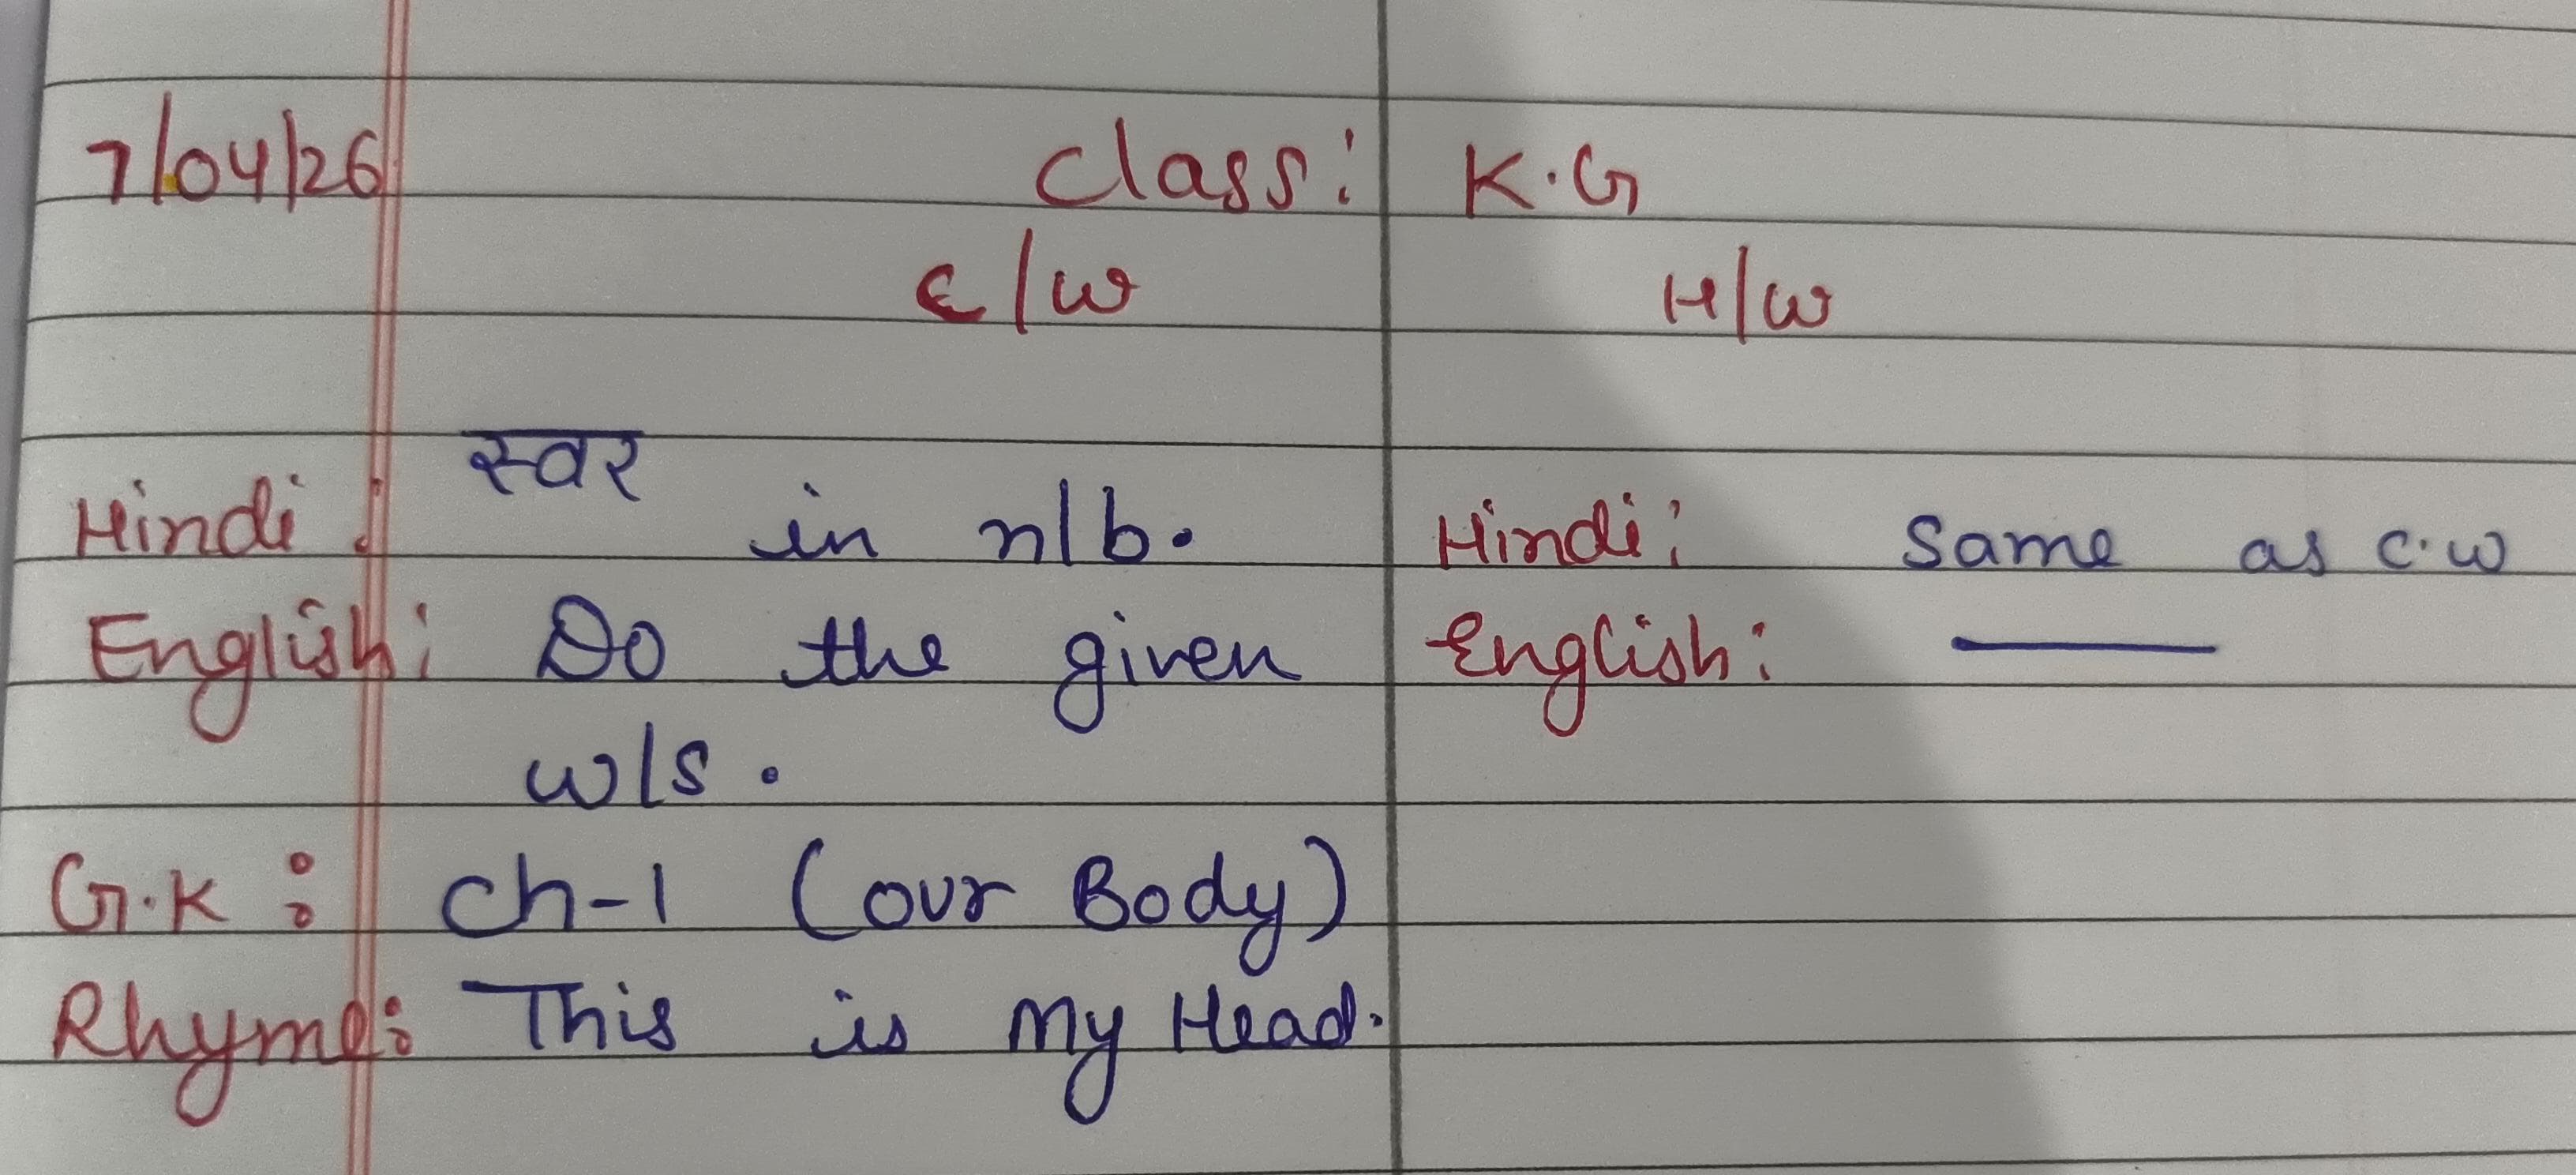 7/04/26 Class: K.G
C/W H/W
Hindi: स्वर in n/b. Hindi: Same as c.w
English: Do the given English: ———
w/s.
G.K: Ch-1 (our Body)
Rhyme: This is My Head.